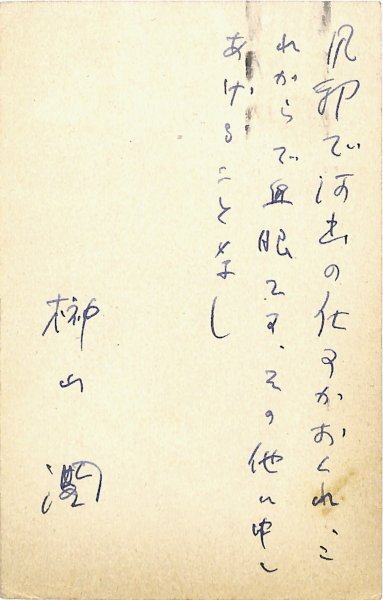 風邪で河出の仕事がおくれ、こ
れからで近眼です、その他に申し
あげることなし
榊山 潤